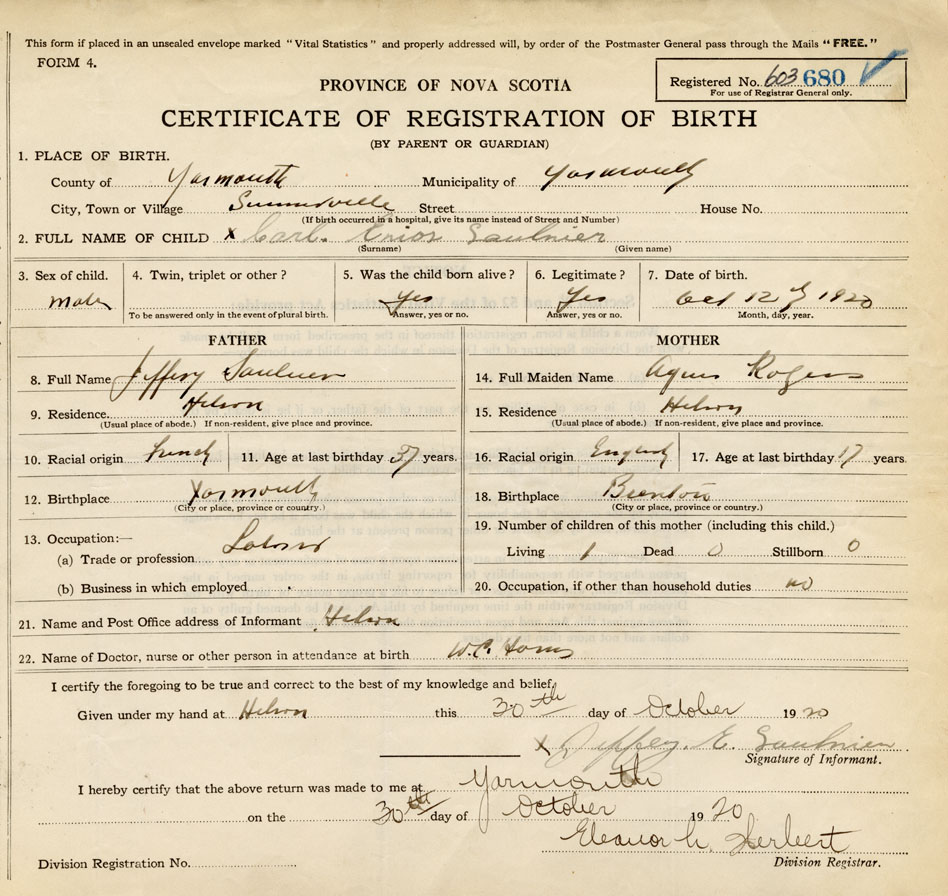 This form if placed in an unsealed envelope marked "Vital Statistics" and properly addressed will, by order of the Postmaster General pass through the Mails "FREE."
FORM 4.
Registered No. 603 680
For use of Registrar General only.
PROVINCE OF NOVA SCOTIA
CERTIFICATE OF REGISTRATION OF BIRTH
(BY PARENT OR GUARDIAN)
1. PLACE OF BIRTH.
County of Yarmouth Municipality of Yarmouth
City, Town or Village Street House No.
(If birth occurred in a hospital, give its name instead of Street and Number)
2. FULL NAME OF CHILD x Carl. Saulnier
(Surname) (Given name)
3. Sex of child. 4. Twin, triplet or other? 5. Was the child born alive? 6. Legitimate? 7. Date of birth.
male Yes Yes Oct 12 1920
To be answered only in the event of plural birth. Answer, yes or no. Answer, yes or no. Month, day, year.
FATHER MOTHER
8. Full Name Jeffery Saulnier 14. Full Maiden Name Agnes Rogers
9. Residence. 15. Residence
(Usual place of abode.) If non-resident, give place and province. (Usual place of abode.) If non-resident, give place and province.
10. Racial origin French 11. Age at last birthday 37 years. 16. Racial origin English 17. Age at last birthday 17 years.
12. Birthplace Yarmouth 18. Birthplace
(City or place, province or country.) (City or place, province or country.)
13. Occupation:— 19. Number of children of this mother (including this child.)
(a) Trade or profession Labour Living 1 Dead 0 Stillborn 0
(b) Business in which employed 20. Occupation, if other than household duties no
21. Name and Post Office address of Informant
22. Name of Doctor, nurse or other person in attendance at birth W.C.
I certify the foregoing to be true and correct to the best of my knowledge and belief,
Given under my hand at this 30th day of October 1920
x Jeffrey. E. Saulnier
Signature of Informant.
I hereby certify that the above return was made to me at Yarmouth
on the 30th day of October 1920
Eleanor h. Herbert
Division Registration No. Division Registrar.